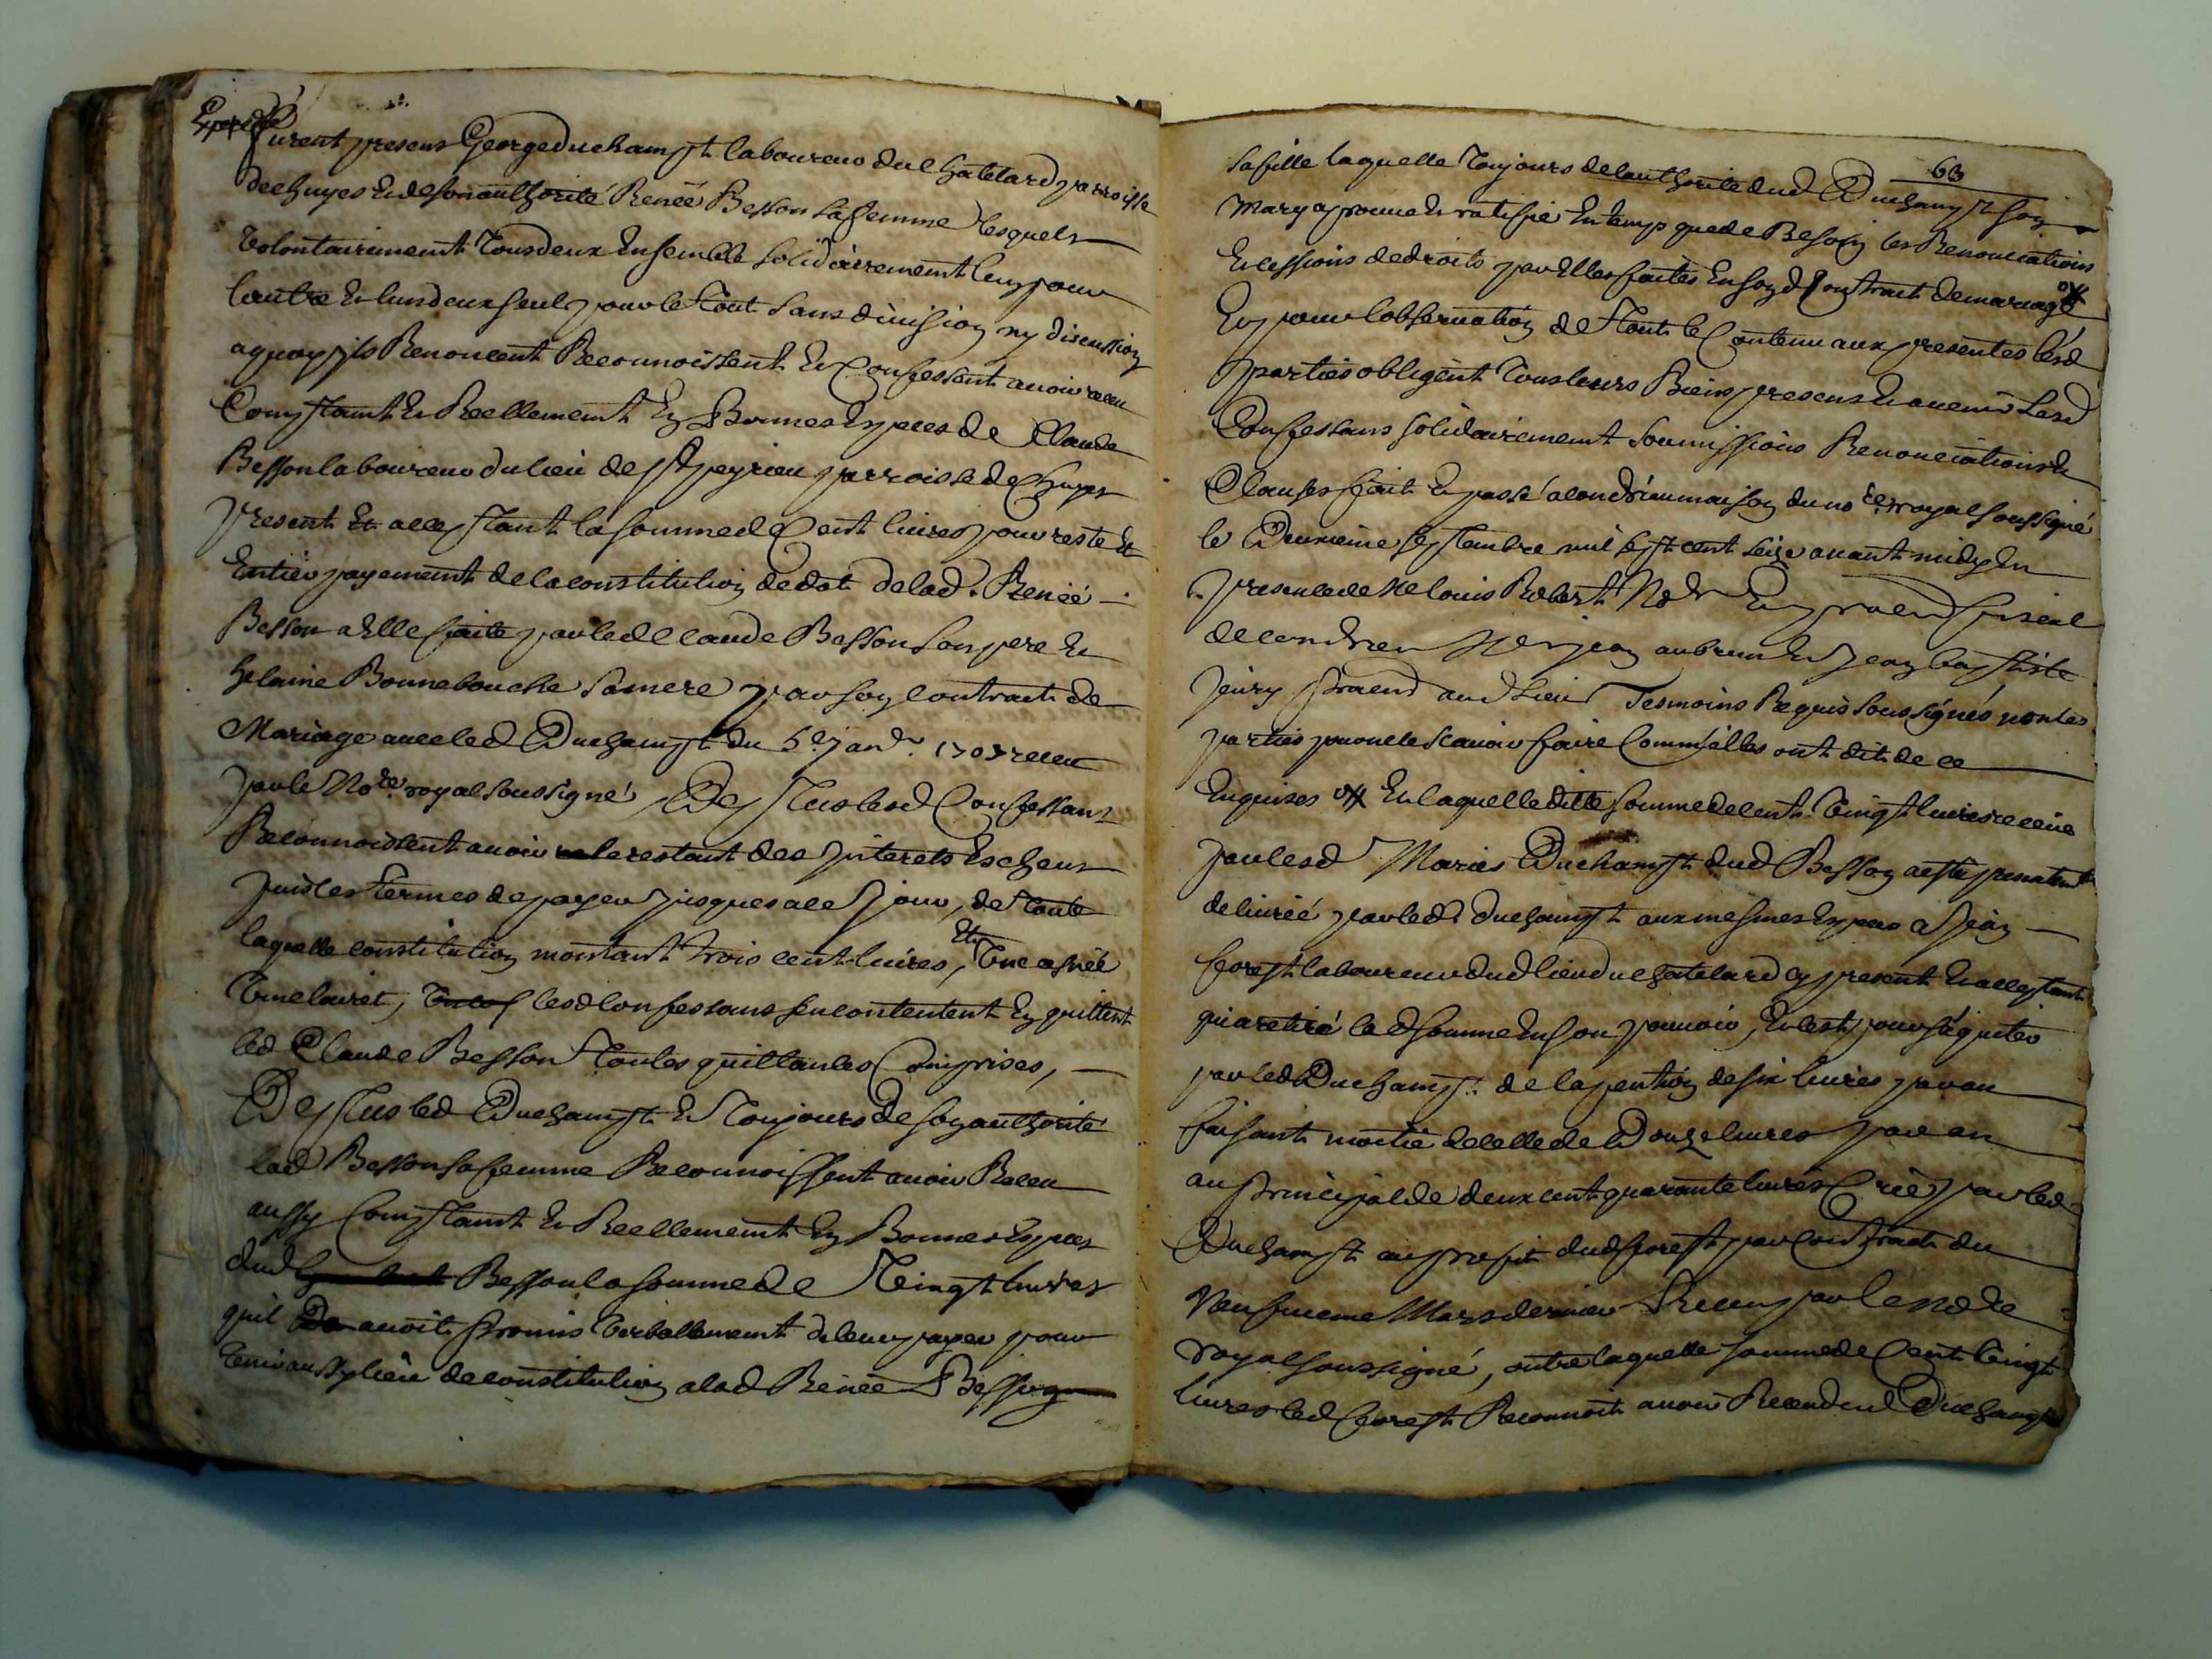 Expedié
furent presens George duchampt laboureur du Chatelard parroisse
de chuyes et de son authorité Renée Besson sa femme lesquels
volontairement tous deux ensemble solidairement l'un pour
lautre et lun deux seul pour le tout sans division ny discussion
a quoy ils Renoncent Reconnoissent et Confessent avoir receu
Comptant et Reellement en Bonnes Especes de Claude
Besson laboureur du lieu de St peyrieu parroisse de Chuyes
present et acceptant la somme de Cent livres pour reste et
Entier payement de la constitution de dot de lad. Renée
Besson a Elle faite par led Claude Besson son pere et
helaine Bonnebouche sa mere par son contract de
Mariage avec led Duchampt du 5e janr. receu
par le Nore. royal soussigné, De plus lesd Confessans
Reconnoissent avoir le restant des Interets Escheus
puis les termes de payer jusques a ce jour, de toute
laquelle constitution montant trois cent livres, Et Une asnée
lesd Confessans se contentent En quittent
led Claude Besson toutes quittances Comprises,
De plus led Duchampt et toujours de son authorité
lad Besson sa femme Reconnoissent avoir Receu
aussy Comptant et Reellement En Bonnes Especes
dud Besson la somme de Vingt livres
quil avoit promis Verballement de leur payer pour
tenir aussy lieu de constitution a lad Renée Besson
63
sa fille laquelle Toujours de lauthorité dud Duchampt son
Mary approuve et ratifie En temps que de Besoin les Renonciations
Et cessions de droits par Elles faites En son d Contract de mariage
Et pour lobservation de Tout le Contenu aux presentes lesd
parties obligent Tous leurs Biens presens et avenir Lesd
Confessans solidairement Soumissions Renonciations et
Clauses fait Et passé a Condrieu maison du nore. royal soussigné
le Deuxieme septembre mil sept cent seize avant midy En
presence de Me louis Robert Nore Et procur fiscal
de condrieu jean aubrun et jean baptiste
aud Lieu Tesmoins Requis soussignés non les
parties pour ne le scavoir faire Comm'elles ont dit de ce
Enquises Et laquelle ditte somme de cent Vingt livres receue
par lesd Mariés Duchampt dud Besson a esté presentement
delivrée par led. duchampt aux mesmes Especes a Jean
forest laboureur dud lieu du Chatelard cy present et acceptant
qui a retiré lad somme En son pouvoir, Et c'est pour s'aquiter
par led Duchampt de la pention de six livres par an
faisant moitié de celle de Douze livres par an
au principal de deux cent quarante livres Créé par led
Duchampt au profit dud forest par Contract du
Neufvieme Mars dernier Receu par le nore
royal soussigné, outre laquelle somme de Cent Vingt
livres led forest Reconnoit avoir Receu dud Duchampt